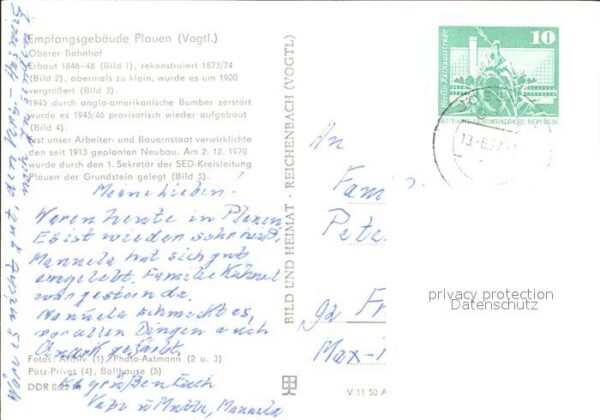 Empfangsgebäude Plauen (Vogtl.)
Oberer Bahnhof
Erbaut 1846-48 (Bild 1), rekonstruiert 1873/74
(Bild 2), abermals zu klein, wurde es um 1900
vergrößert (Bild 3).
1945 durch anglo-amerikanische Bomber zerstört
wurde es 1945/46 provisorisch wieder aufgebaut
(Bild 4).
Erst unser Arbeiter- und Bauernstaat verwirklichte
den seit 1913 geplanten Neubau. Am 2. 12. 1970
wurde durch den 1. Sekretär der SED-Kreisleitung
Plauen der Grundstein gelegt (Bild 5).
Waren heute in Plauen
Es ist wieder sehr heiß.
Manuela hat sich gut
eingelebt. Familie
war gestern da.
Manuela schmeckt es,
vor allen Dingen auch
Quark
Fotos: Archiv (1) Photo-Axtmann (2 u. 3)
Potz-Privat (4), Ballhause (5)
DDR 0,25 M
Es grüßen Euch
Vater u Mutter, Manuela
BILD UND HEIMAT · REICHENBACH (VOGTL)
V 11 50 A
10
Berlin-Rathausstraße
DEUTSCHE DEMOKRATISCHE REPUBLIK
An
Fami
Pete
Max-
privacy protection
Datenschutz